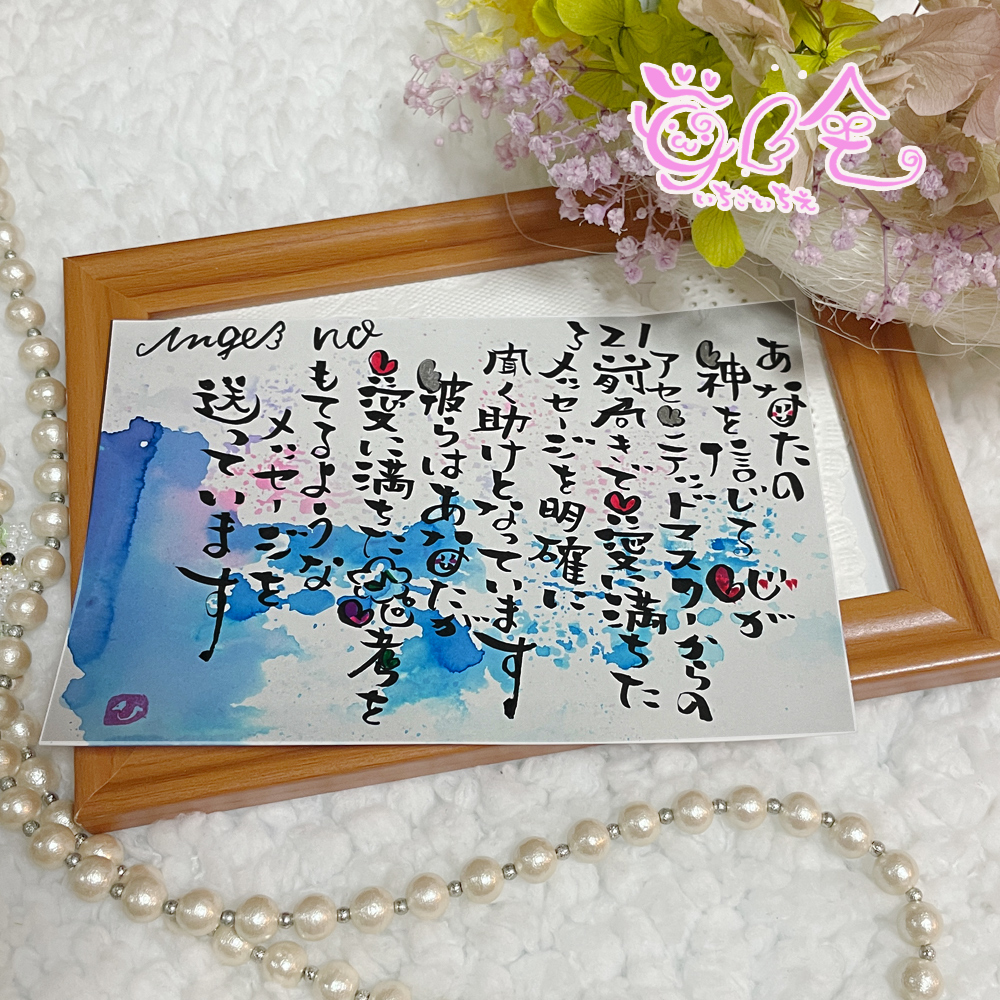 Angel no 321
あなたの
神を信じて心が
アセンデッドマスターからの
前向きで愛に満ちた
メッセージを明確に
聞く助けとなっています
彼らはあなたが
愛に満ちた思考を
もてるような
メッセージを
送っています
いちごいちえ